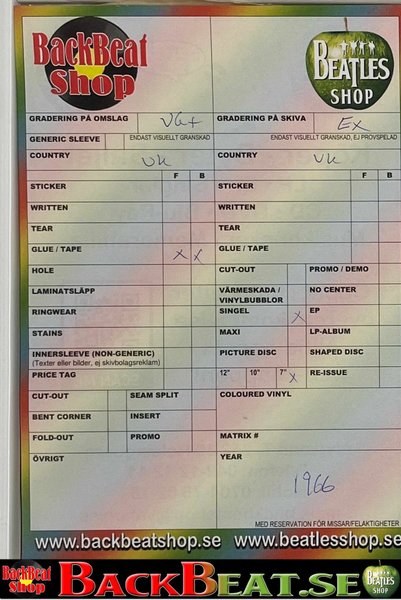 BackBeat Shop
BEATLES SHOP
GRADERING PÅ OMSLAG VG+ GRADERING PÅ SKIVA Ex
GENERIC SLEEVE ENDAST VISUELLT GRANSKAD ENDAST VISUELLT GRANSKAD, EJ PROVSPELAD
COUNTRY UK COUNTRY UK
F B F B
STICKER STICKER
WRITTEN WRITTEN
TEAR TEAR
GLUE / TAPE x x GLUE / TAPE
HOLE CUT-OUT PROMO / DEMO
LAMINATSLÄPP VÄRMESKADA / VINYLBUBBLOR NO CENTER
RINGWEAR SINGEL x EP
STAINS MAXI LP-ALBUM
INNERSLEEVE (NON-GENERIC) PICTURE DISC SHAPED DISC
(Texter eller bilder, ej skivbolagsreklam)
PRICE TAG 12" 10" 7" x RE-ISSUE
CUT-OUT SEAM SPLIT COLOURED VINYL
BENT CORNER INSERT
FOLD-OUT PROMO MATRIX #
ÖVRIGT YEAR
1966
MED RESERVATION FÖR MISSAR/FELAKTIGHETER
www.backbeatshop.se www.beatlesshop.se
BackBeat Shop BACKBEAT.SE BEATLES SHOP